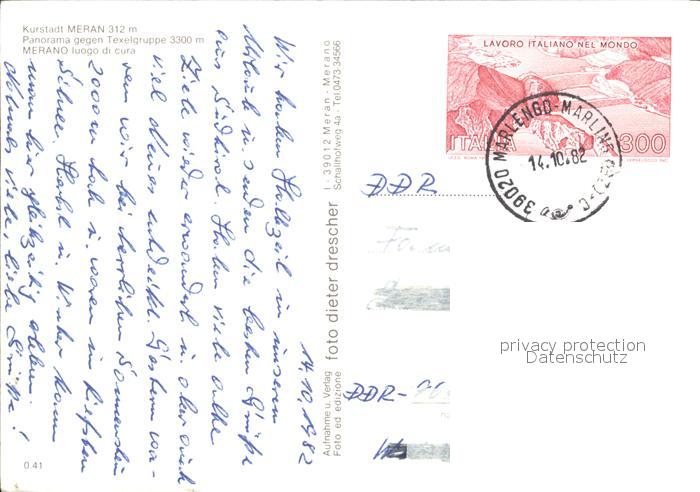 Kurstadt MERAN 312 m
Panorama gegen Texelgruppe 3300 m
MERANO luogo di cura
14.10.1982
Wir haben Halbzeit in unserem
Urlaub u. senden die besten Grüße
aus Südtirol. Haben viele alte
Ziele wieder erwandert u. aber auch
viel Neues entdeckt. Gestern wa-
ren wir bei herrlichem Sonnenschein
2000 m hoch u. waren im tiefsten
Schnee. Herbst u. Winter kann
man hier gleichzeitig erleben.
viele, liebe Grüße!
0.41
Aufnahme u. Verlag
Foto ed edizione
foto dieter drescher
I - 39012 Meran - Merano
Schallhofweg 4a · Tel. 0473 34566
LAVORO ITALIANO NEL MONDO
ITALIA
300
39020 MARLENGO-MARLING
14.10.82
DDR
DDR-
privacy protection
Datenschutz